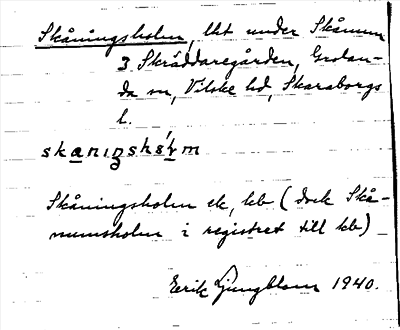 Skåningsholm, lht under Skånum
3 Skräddaregården, Grolan-
da sn, Vilske hd, Skaraborgs
l.
Skåningsholm ek, kb (dock Skå-
numsholm i registret till kb)
Erik Ljungblom 1940.